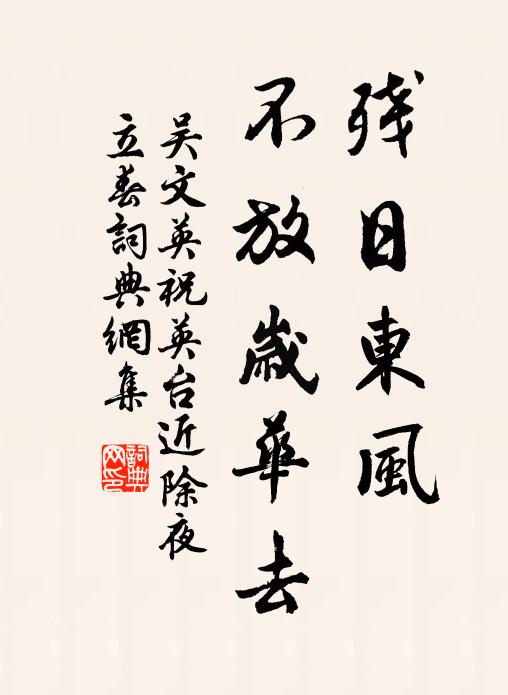 残日東風
不放歲華去
吴文英祝英台近除夜
立春詞典網集
詞典
网印